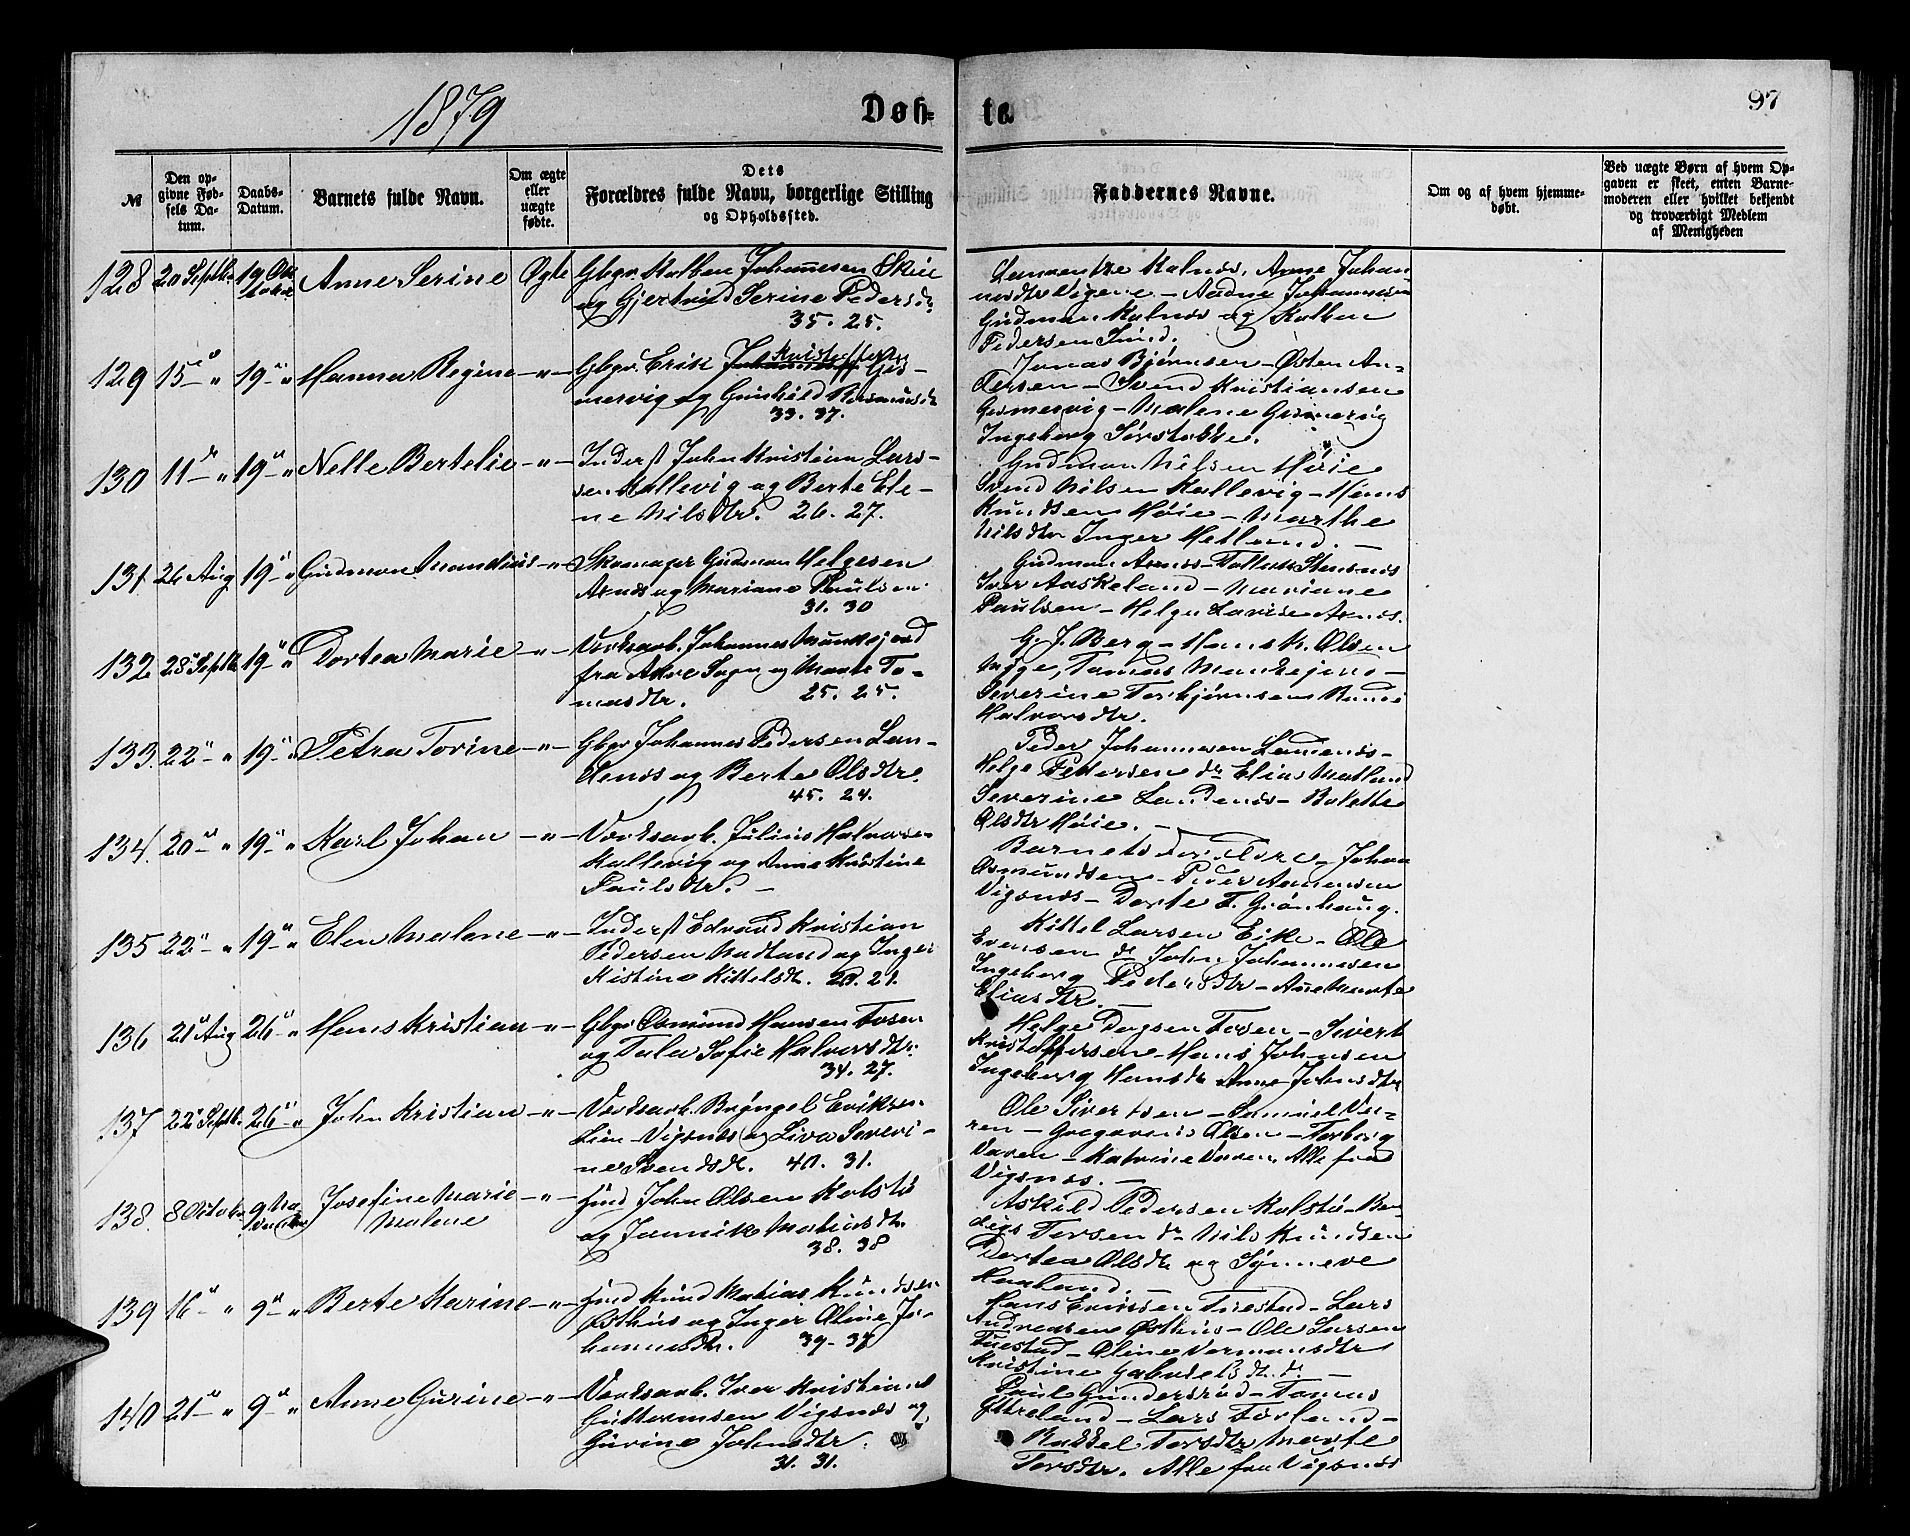 1879
Døb-
te.
97
№
Den op-
givne Fød-
sels Da-
tum.
Daabs-
Datum.
Barnets fulde Navn.
Om ægte
eller
uægte
fødte.
Dets
Forældres fulde Navn, borgerlige Stilling
og Opholdssted.
Faddernes Navne.
Om og af hvem hjemme-
døbt.
Ved uægte Børn af hvem Op-
gaven er skeet, enten Barne-
moderen eller hvilket bekjendt
og troværdigt Medlem
af Menigheden
128 20 Septbr 19 Oktober Anne Serine Ægte Gbgr. Kolben Johannesen
og Gjertrud Serine Pedersdr
35. 25.
Kalnes, Anne Johan-
nesdtr Vigene - Aadne Johannesen
Gudman Kalnes og Kolben
Pedersen
129 15 " 19 " Hanna Regine - " - Gbgr. Erik Kristoffersen Gis-
mervig og Gunhild Rasmusdr
33. 37.
Jonas Bjørnsen - Østen An-
dersen - Svend Kristiansen
Gismervig - Malene Gismervig
Ingeborg Sørstokke.
130 11 " 19 " Nelle Bertelie - " - Inderst John Kristian Lars-
sen Kallevig og Berte Ele-
ne Nilsdtr. 26. 27.
Gudmon Nilsen Høie
Svend Nilsen Kallevig - Hans
Knudsen Høie - Marthe
Nilsdtr Inger Hetland. -
131. 26 Aug 19 " Gudmon Mandius - " - Skomager Gudmon Helgesen
Arnes og Mariane Paulsen
31. 30
Gudmon Arnes - Stensnes
Iver Aaskeland - Mariane
Paulsen - Helga Lavise Arnes.
132. 28 Septbr 19 " Dortea Marie - " - Værksarb. Johannes
fra Akre Sogn og Marte To-
masdtr. 25. 25.
G. J. Berg - Hans K. Olsen
Tomas
Severine Torbjørnsen
Halvorsdtr.
133. 22 " 19 " Petra Torine - " - Gbgr Johannes Pedersen Lan-
denes og Berte Olsdtr.
45. 24.
Peder Johannesen Landenes -
Helge Pedersen do Elias Matland
Severine Landenes - Bolette
Olsdtr Høie. -
134. 20 " 19 " Karl Johan - " - Værksarb. Julius Halvorsen
Kallevig og Anne Kristine
Paulsdtr. -
Barnets Johan
Osmundsen - Peder
Vigsnes - Dorte T. Grønhaug.
135 22 " 19 " Elen Malene - " - Inderst Edvard Kristian
Pedersen Matland og Inger
Kistine Kittelsdtr. 20. 21.
Kittel Larsen Eike - Ole
Evensen do John Johannesen
Ingeborg Pedersdtr - Ane Marte
Eliasdtr. -
136 21 Aug 26 " Hans Kristian - " - Gbgr Osmund Hansen Fosen
og Tala Sofie Halvorsdtr.
34. 27.
Helge Dagsen Fosen - Sivert
Kristoffersen - Hans Johnsen
Ingeborg Hansdtr Anne Johnsdtr
137 22 Septb. 26 " John Kristian - " - Værksarb. Bryngel Eriksen
Lien - Vigsnes og Liva Severi-
ne Svendsdtr. 40. 31.
Ole Sivertsen - Samuel Va-
ren - Gregorius Olsen - Torborg
Varen - Katrine Varen, Alle fra
Vigsnes. -
138. 8 Octobr 9 November Josefine Marie
Malene - " - Hmd John Olsen Kolstø
og Jannike Matiasdtr.
38. 38
Askild Pedersen Kolstø -
Torsen do Nils Knudsen
Dortea Olsdtr og Synneve
Haaland. -
139 16 " 9 " Berte Karine - " - Hmd Knud Matias Knudsen
Østhus og Inger Oline Jo-
hannesdtr. 39 - 37
Hans Eriksen Tuestad - Lars
Andreasen Østhus - Ole Larsen
Tuestad - Oline Normansdtr
Kristine Gabrielsdtr. do. -
140 21 " 9 " Anne Gurine - " - Værksarb. Iver Kristian
Guttormsen Vigsnes og
Gurine Johnsdtr.
31. 31.
Paul Gundersrud - Tomas
Ytreland - Lars Førland -
Rakkel Torsdtr Marte
Torsdtr. Alle fra Vigsnes